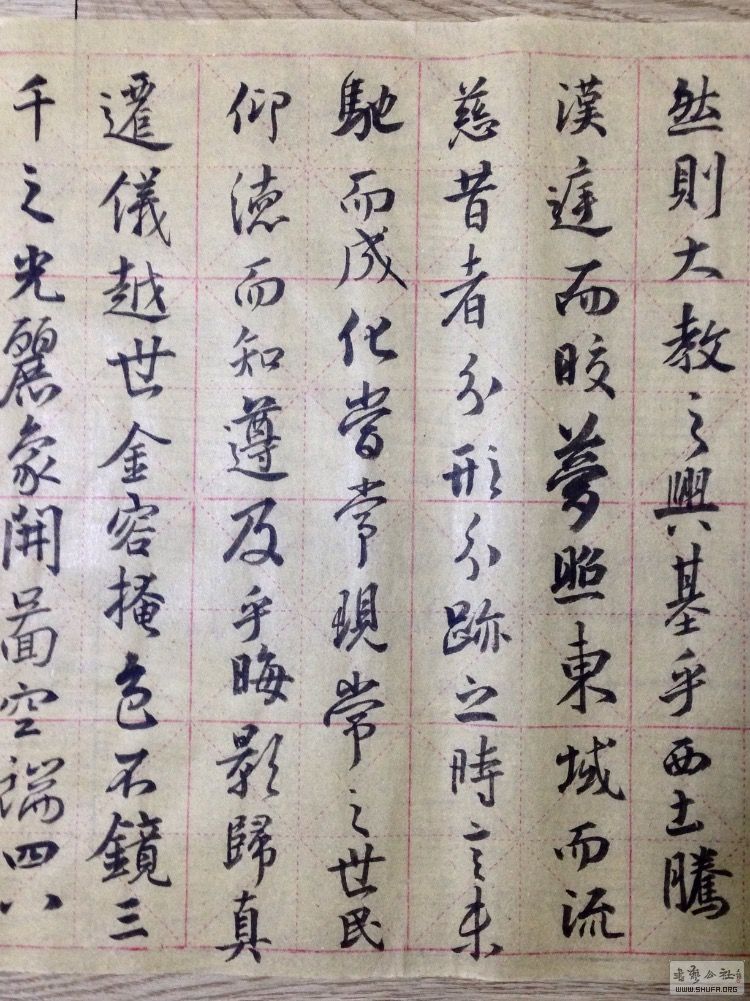 然則大教之興基乎西土騰
漢庭而皎夢照東域而流
慈昔者分形分跡之時言未
馳而成化當常現常之世民
仰德而知遵及乎晦影歸真
遷儀越世金容掩色不鏡三
千之光麗象開圖空端四八
WWW.SHUFA.ORG